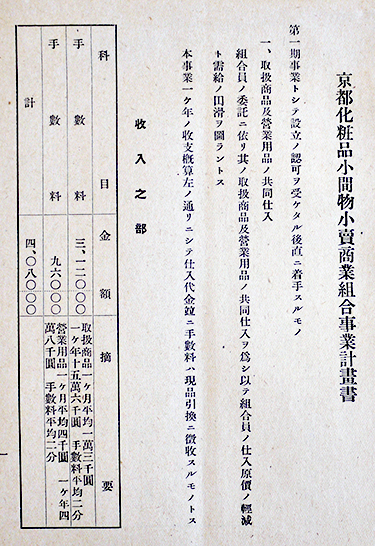 京都化粧品小間物小賣商業組合事業計畫書
第一期事業トシテ設立ノ認可ヲ受ケタル後直ニ着手スルモノ
一、取扱商品及營業用品ノ共同仕入
組合員ノ委託ニ依リ其ノ取扱商品及營業用品ノ共同仕入ヲ爲シ以テ組合員ノ仕入原價ノ輕減
ト需給ノ円滑ヲ圖ラントス
本事業一ケ年ノ收支概算左ノ通リニシテ仕入代金竝ニ手數料ハ現品引換ニ徵收スルモノトス
收入之部
科目 金額 摘要
手數料 三、一二〇〇〇 取扱商品一ケ月平均一萬三千圓
一ケ年十五萬六千圓 手數料平均二分
手數料 九六〇〇〇 營業用品一ケ月平均四千圓 一ケ年四
萬八千圓 手數料平均二分
計 四、〇八〇〇〇